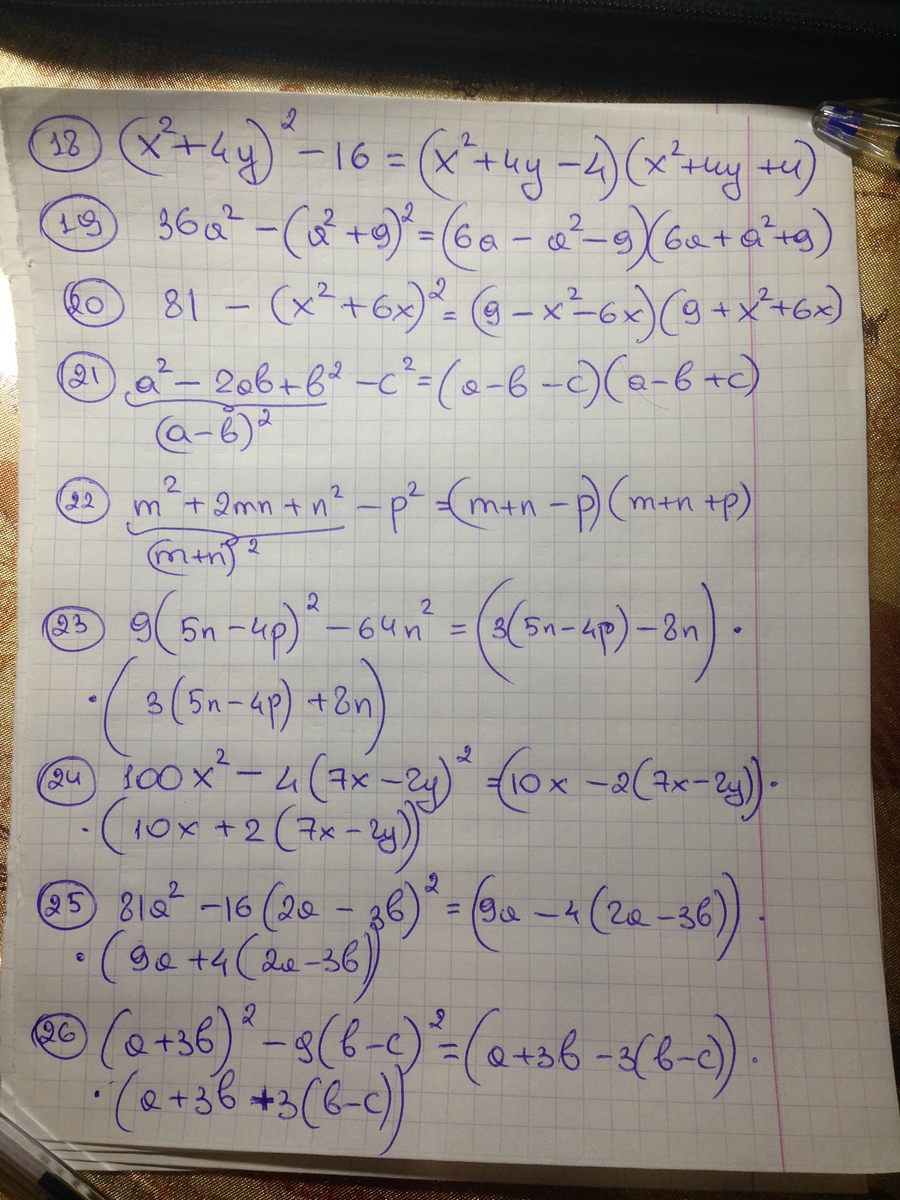 18 (x² + 4y)² - 16 = (x² + 4y - 4)(x² + 4y + 4)
19 36a² - (a² + 9)² = (6a - a² - 9)(6a + a² + 9)
20 81 - (x² + 6x)² = (9 - x² - 6x)(9 + x² + 6x)
21 a² - 2ab + b² - c² = (a - b - c)(a - b + c)
(a - b)²
22 m² + 2mn + n² - p² = (m + n - p)(m + n + p)
(m + n)²
23 9(5n - 4p)² - 64n² = (3(5n - 4p) - 8n) ·
· (3(5n - 4p) + 8n)
24 100x² - 4(7x - 2y)² = (10x - 2(7x - 2y)) ·
· (10x + 2(7x - 2y))
25 81a² - 16(2a - 3b)² = (9a - 4(2a - 3b)) ·
· (9a + 4(2a - 3b))
26 (a + 3b)² - 9(b - c)² = (a + 3b - 3(b - c)) ·
· (a + 3b + 3(b - c))